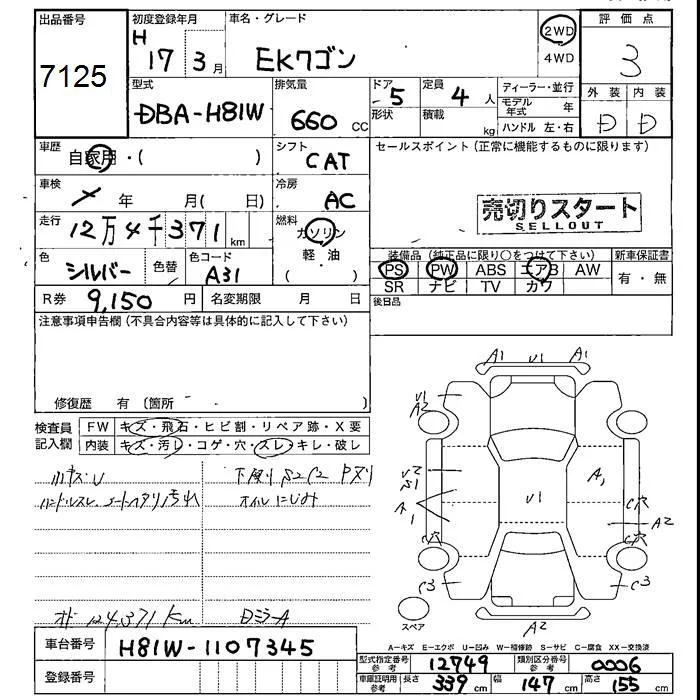 出品番号
7125
初度登録年月
H
17 3月
車名・グレード
EKワゴン
2WD
4WD
評価点
3
外装 内装
D D
型式
DBA-H81W
排気量
660 CC
ドア
5
形状
定員
4 人
積載
kg
ディーラー・並行
モデル年式 年
ハンドル 左・右
車歴
自家用・( )
シフト
CAT
セールスポイント(正常に機能するものに限ります)
車検
年 月( 日)
冷房
AC
売切りスタート
SELLOUT
走行
12万4千371km
燃料
ガソリン
軽・油
( )
色
シルバー
色替
色コード
A31
装備品(純正品に限り○をつけて下さい)
新車保証書
PS PW ABS エアB AW
SR ナビ TV カワ
有・無
R券 9,150 円
名変期限 月 日
後日品
注意事項申告欄(不具合内容等は具体的に記入して下さい)
修復歴 有〔箇所
検査員
記入欄
FW キズ・飛石・ヒビ割・リペア跡・X要
内装 キズ・汚し・コゲ・穴・スレ・キレ・破レ
小キズU
下廻り S2C2 Pズリ
ハンドルスレ シートヘタリ汚れ
オイルにじみ
オド 124,371 km
DミラーA
A1 U1 A1
U1
A2
U2
S1
A1
U1
A1
C穴
A2
C穴
C穴
C3
C3
A2
スペア
車台番号
H81W-1107345
登録番号
A-キズ E-エクボ U-凹み W-補修跡 S-サビ C-腐食 XX-交換済
型式指定番号
参考
12749
類別区分番号
参考
0006
車庫証明用
参考
長さ 339 cm 幅 147 cm 高さ 155 cm